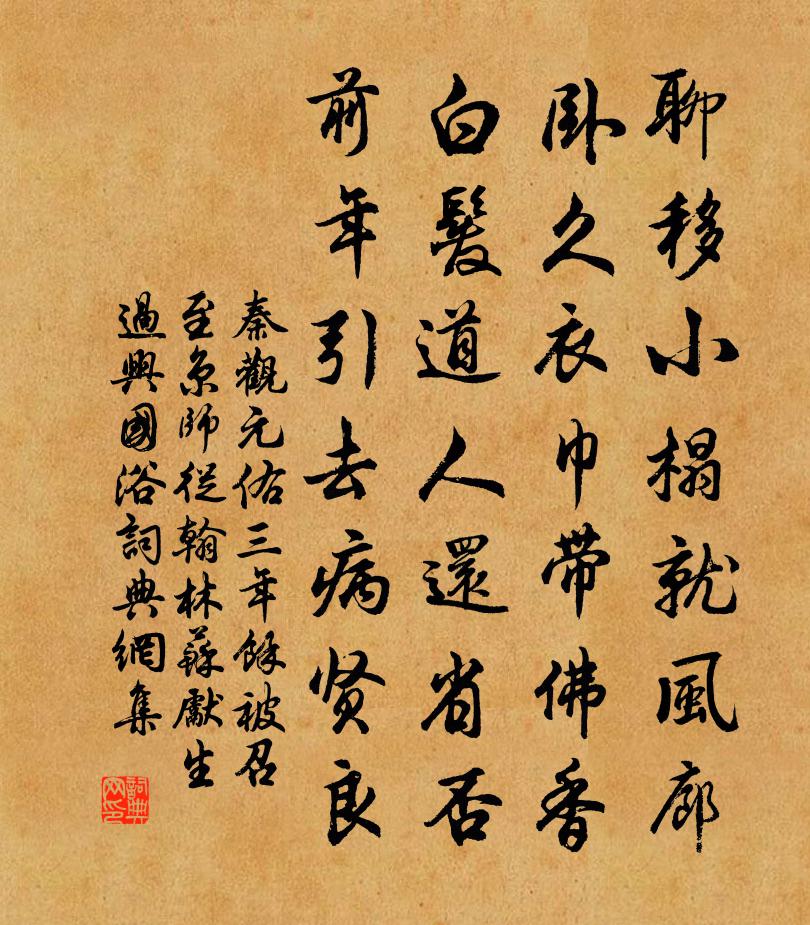 聊移小榻就風廊
卧久衣巾帶佛香
白髮道人還省否
前年引去病贤良
秦觀元佑三年餘被召
至京師從翰林蘇獻生
過興國浴詞典網集
詞典网印